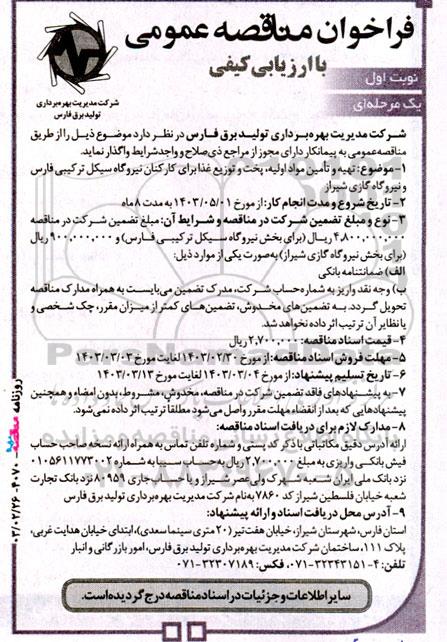 فراخوان مناقصه عمومی
با ارزیابی کیفی
نوبت اول
یک مرحله‌ای
شرکت مدیریت بهره‌برداری
تولید برق فارس
شرکت مدیریت بهره‌برداری تولید برق فارس در نظر دارد موضوع ذیل را از طریق
مناقصه عمومی به پیمانکار دارای مجوز از مراجع ذی‌صلاح و واجد شرایط واگذار نماید.
۱- موضوع: تهیه و تأمین مواد اولیه، پخت و توزیع غذا برای کارکنان نیروگاه سیکل ترکیبی فارس
و نیروگاه گازی شیراز
۲- تاریخ شروع و مدت انجام کار: از مورخ ۱۴۰۳/۰۵/۰۱ به مدت ۸ ماه
۳- نوع و مبلغ تضمین شرکت در مناقصه و شرایط آن: مبلغ تضمین شرکت در مناقصه
۴,۸۰۰,۰۰۰,۰۰۰ ریال (برای بخش نیروگاه سیکل ترکیبی فارس) و ۹۰۰,۰۰۰,۰۰۰ ریال
(برای بخش نیروگاه گازی شیراز) به‌صورت یکی از موارد ذیل:
الف) ضمانتنامه بانکی
ب) وجه نقد واریز به شماره حساب شرکت، مدرک تضمین می‌بایست به همراه مدارک مناقصه
تحویل گردد. به تضمین‌های مخدوش، تضمین‌های کمتر از میزان مقرر، چک شخصی و
یا نظایر آن ترتیب اثر داده نخواهد شد.
۴- قیمت اسناد مناقصه: ۲,۷۰۰,۰۰۰ ریال
۵- مهلت فروش اسناد مناقصه: از مورخ ۱۴۰۳/۰۲/۳۰ لغایت مورخ ۱۴۰۳/۰۳/۰۳
۶- تاریخ تسلیم پیشنهاد: از مورخ ۱۴۰۳/۰۳/۰۴ لغایت مورخ ۱۴۰۳/۰۳/۱۳
۷- به پیشنهادهای فاقد تضمین شرکت در مناقصه، مخدوش، مشروط، بدون امضاء و همچنین
پیشنهادهایی که بعد از انقضاء مهلت مقرر واصل می‌شود مطلقا ترتیب اثر داده نمی‌شود.
۸- مدارک لازم برای دریافت اسناد مناقصه:
ارائه آدرس دقیق مکاتباتی با ذکر کد پستی و شماره تلفن تماس به همراه ارائه نسخه صاحب حساب
فیش بانکی واریزی به مبلغ ۲,۷۰۰,۰۰۰ ریال به حساب سیبا به شماره ۰۱۰۵۶۱۱۷۷۳۰۰۲
نزد بانک ملی ایران شعبه شهرک ولی عصر شیراز و یا حساب جاری ۸۰۹۵۹ نزد بانک تجارت
شعبه خیابان فلسطین شیراز کد ۷۸۶۰ به نام شرکت مدیریت بهره‌برداری تولید برق فارس
۹- آدرس محل دریافت اسناد و ارائه پیشنهاد:
استان فارس، شهرستان شیراز، خیابان هفت تیر (۲۰ متری سینما سعدی)، ابتدای خیابان هدایت غربی،
پلاک ۱۱۱، ساختمان شرکت مدیریت بهره‌برداری تولید برق فارس، امور بازرگانی و انبار
تلفن: ۴-۳۲۳۴۳۱۵۱-۰۷۱، فکس: ۳۲۳۰۷۱۸۹-۰۷۱
سایر اطلاعات و جزئیات در اسناد مناقصه درج گردیده است.
روزنامه مناقصه مزایده ۴۰۷۰ - ۰۳/۰۲/۲۶